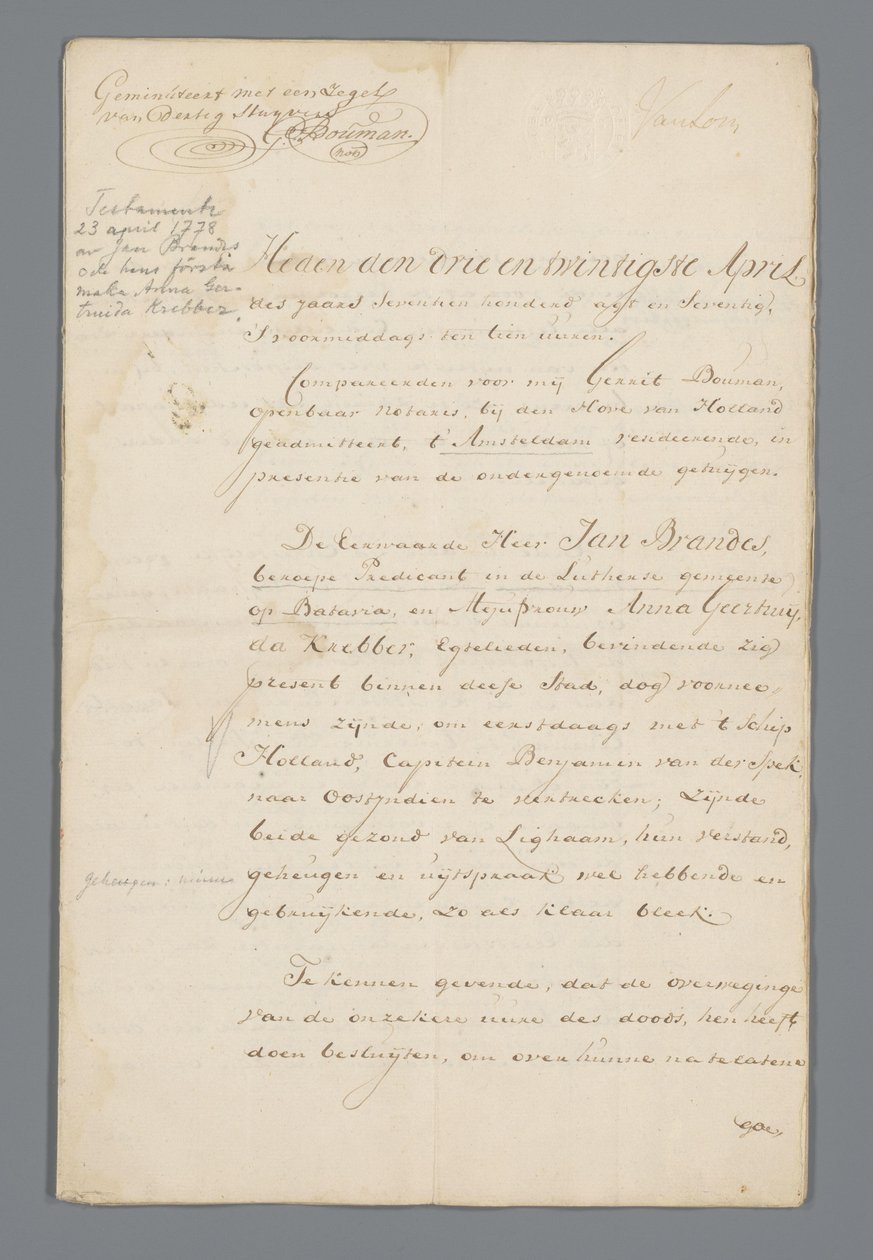 Geminuteert met een Zegel
van Dertig Stuyvers
G. Bouman.
not
Van Lom
Testamente
23 april 1778
av Jan Brandes
och hans första
maka Anna Ger-
truida Krebber.
Heden den drie en twintigste April
des jaars Seventien honderd agt en Seventig,
S voormiddags ten tien uuren.
Compareerden voor mij Gerrit Bouman,
openbaar Notaris, bij den Hove van Holland
geadmitteert, t' Amsteldam resideerende, in
presentie van de ondergenoemde getuijgen.
De Eerwaarde Heer Jan Brandes,
beroepe Predicant in de Lutherse gemeente
op Batavia, en Mejufrouw Anna Geertruij,
da Krebber, Egtelieden, bevindende zig
present binnen deese Stad, dog voornee„
mens zijnde, om eerstdaags met 't Schip
Holland, Capitein Benjamin van der Spek,
naar Oostjndien te vertrecken; Zijnde
beide gezond van Lighaam, hun verstand,
geheugen : minne
geheugen en uijtspraak wel hebbende en
gebruijkende, zo als klaar bleek.
Te kennen gevende, dat de overweginge
van de onzekere uure des doods, hen heeft
doen besluijten, om over hunne natelatene
goe,